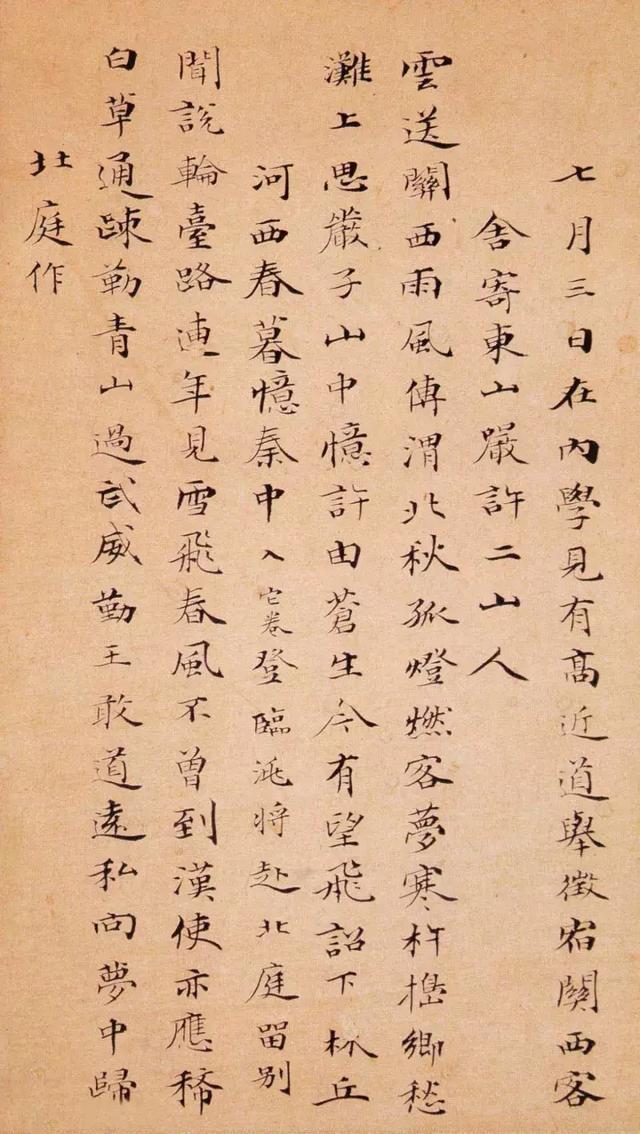 七月三日在內學見有高近道舉徵宿關西客
舍寄東山嚴許二山人
雲送關西雨風傳渭北秋孤燈燃客夢寒杵搗鄉愁
灘上思嚴子山中憶許由蒼生今有望飛詔下林丘
河西春暮憶秦中入它卷登臨洮將赴北庭留別
聞說輪臺路連年見雪飛春風不曾到漢使亦應稀
白草通踈勒青山過武威勤王敢道遠私向夢中歸
北庭作